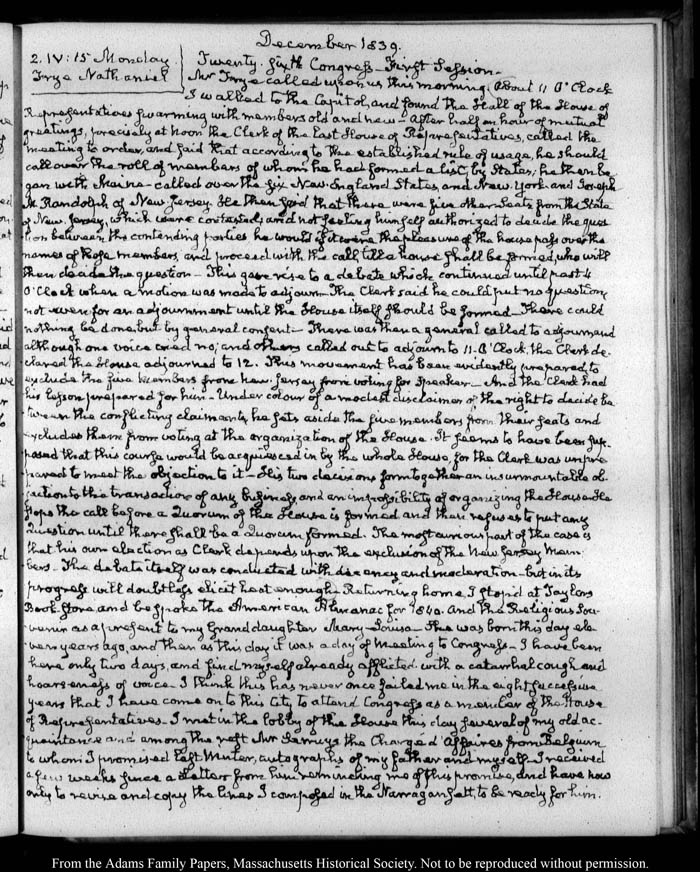 December 1839.
2. IV:15 Monday
Frye Nathaniel
Twenty-sixth Congress First Session.
Mr Frye called upon us this morning. About 11 O'Clock
I walked to the Capitol, and found the Hall of the House of
Representatives swarming with members old and new. After half an hour of mutual
greetings, precisely at noon the Clerk of the last House of Representatives, called the
meeting to order, and said that according to the established rule of usage, he should
call over the roll of members of whom he had formed a list, by States; he then be-
gan with Maine called over the six New England States and New York and Joseph
M. Randolph of New Jersey. He then said that there were five other Seats from the State
of New Jersey, which were contested, and not feeling himself authorized to decide the ques-
tion between the contending parties he would if it were the pleasure of the house pass over the
names of those members, and proceed with the call till a house shall be formed, who will
then decide the question. This gave rise to a debate which continued until past 4
O'Clock when a motion was made to adjourn. The Clerk said he could put no question,
not even for an adjournment until the House itself should be formed. There could
nothing be done but by general consent. There was then a general called to adjourn and
although one voice cried no; and others called out to adjourn to 11. O'Clock, the Clerk de-
clared the House adjourned to 12. This movement has been evidently prepared, to
exclude the five members from New Jersey from voting for Speaker. And the Clerk had
his lesson prepared for him. Under colour of a modest disclaimer of the right to decide be-
tween the conflicting claimants, he sets aside the five members from their seats and
excludes them from voting at the organization of the House. It seems to have been sup-
posed that this course would be acquiesced in by the whole House, for the Clerk was unpre-
pared to meet the objection to it. His two decisions form together an insurmountable ob-
jection to the transaction of any business, and an impossibility of organizing the House. He
stops the call before a Quorum of the House is formed and then refuses to put any
Question until there shall be a Quorum formed. The most curious part of the case is
that his own election as Clerk depends upon the exclusion of the New Jersey Mem-
bers. The debate itself was conducted with decency and moderation but in its
progress will doubtless elicit heat enough. Returning home I stop'd at Taylors
Book Store and bespoke the American Almanac for 1840. and the Religious Sou-
venir as a present to my Granddaughter Mary-Louisa. She was born this day ele-
ven years ago, and then as this day it was a day of meeting to Congress. I have been
here only two days, and find myself already afflicted with a catarrhal cough and
hoarseness of voice. I think this has never once failed me in the eight successive
years that I have come on to this City to attend Congress as a member of the House
of Representatives. I met in the lobby of the House this day several of my old ac-
quaintance and among the rest Mr the Chargé d'Affaires from Belgium
to whom I promised last Winter, autographs of my father and myself. I received
a few weeks since a letter from him reminding me of this promise, and have now
only to revise and copy the lines I composed in the Narragansett, to be ready for him.
From the Adams Family Papers, Massachusetts Historical Society. Not to be reproduced without permission.